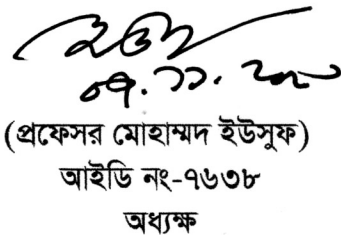 (প্রফেসর মোহাম্মদ ইউসুফ)
আইডি নং-৭৬৩৮
অধ্যক্ষ